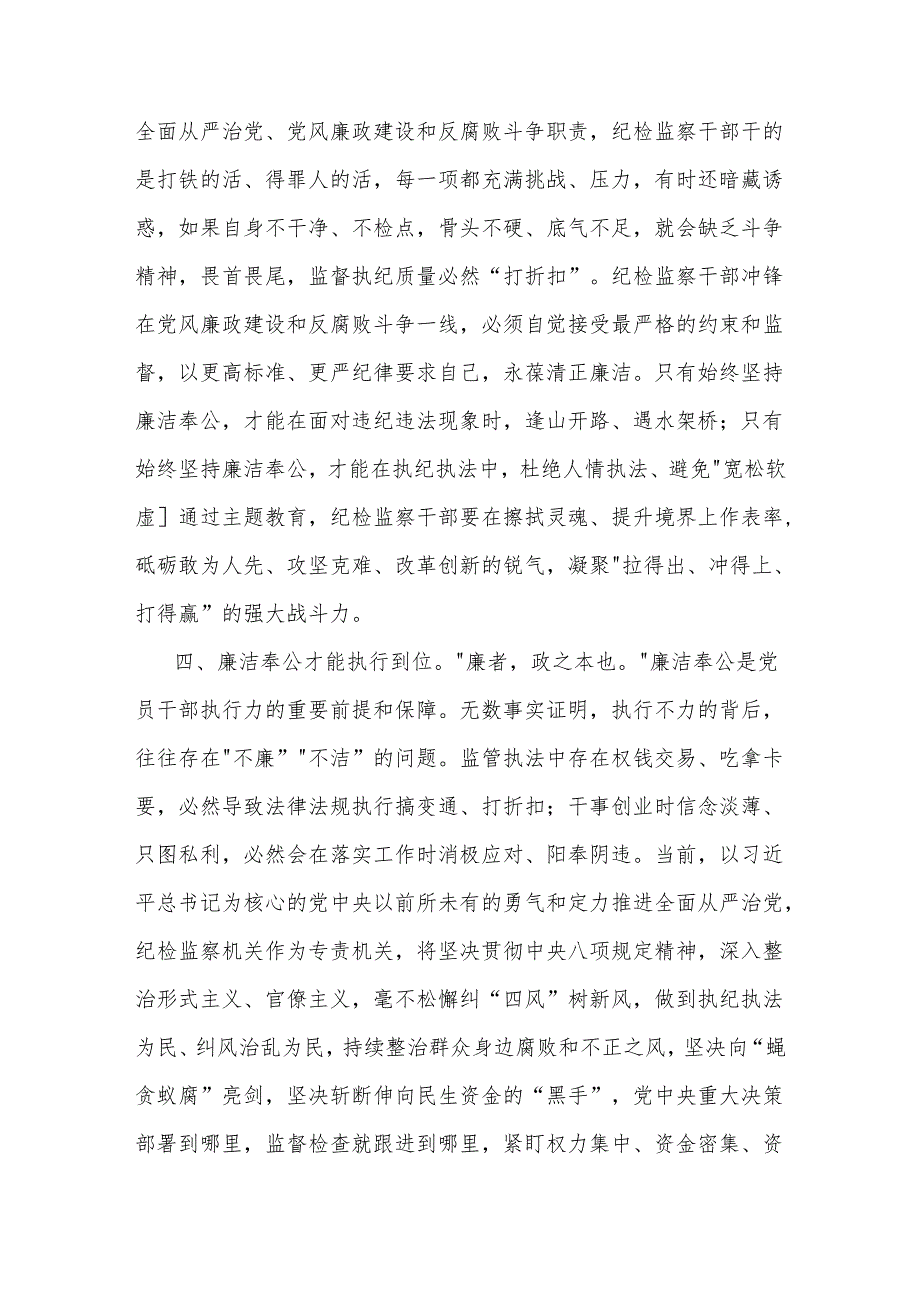 全面从严治党、党风廉政建设和反腐败斗争职责，纪检监察干部干的
是打铁的活、得罪人的活，每一项都充满挑战、压力，有时还暗藏诱
惑，如果自身不干净、不检点，骨头不硬、底气不足，就会缺乏斗争
精神，畏首畏尾，监督执纪质量必然“打折扣”。纪检监察干部冲锋
在党风廉政建设和反腐败斗争一线，必须自觉接受最严格的约束和监
督，以更高标准、更严纪律要求自己，永葆清正廉洁。只有始终坚持
廉洁奉公，才能在面对违纪违法现象时，逢山开路、遇水架桥；只有
始终坚持廉洁奉公，才能在执纪执法中，杜绝人情执法、避免"宽松软
虚］通过主题教育，纪检监察干部要在擦拭灵魂、提升境界上作表率，
砥砺敢为人先、攻坚克难、改革创新的锐气，凝聚"拉得出、冲得上、
打得赢”的强大战斗力。
四、廉洁奉公才能执行到位。"廉者，政之本也。"廉洁奉公是党
员干部执行力的重要前提和保障。无数事实证明，执行不力的背后，
往往存在"不廉”"不洁”的问题。监管执法中存在权钱交易、吃拿卡
要，必然导致法律法规执行搞变通、打折扣；干事创业时信念淡薄、
只图私利，必然会在落实工作时消极应对、阳奉阴违。当前，以习近
平总书记为核心的党中央以前所未有的勇气和定力推进全面从严治党，
纪检监察机关作为专责机关，将坚决贯彻中央八项规定精神，深入整
治形式主义、官僚主义，毫不松懈纠“四风”树新风，做到执纪执法
为民、纠风治乱为民，持续整治群众身边腐败和不正之风，坚决向“蝇
贪蚁腐”亮剑，坚决斩断伸向民生资金的“黑手”，党中央重大决策
部署到哪里，监督检查就跟进到哪里，紧盯权力集中、资金密集、资